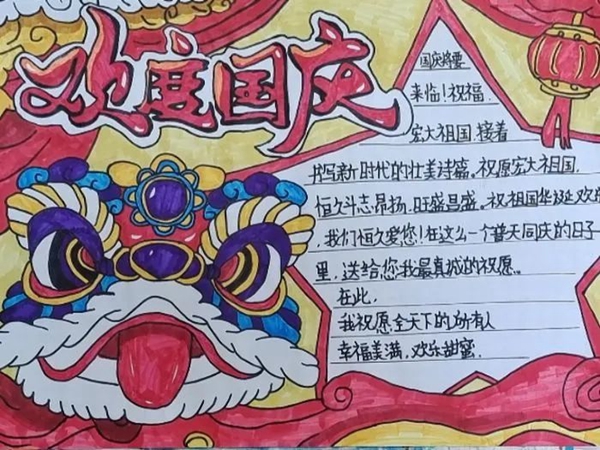 欢度国庆
国庆将要
来临!祝福
宏大祖国,接着
书写新时代的壮美诗篇。祝原宏大祖国,
恒久斗志昂扬,旺盛昌盛。祝祖国华诞欢
,我们恒久爱您!在这么一个普天同庆的日子
里,送给您我最真诚的祝愿。
在此,
我祝愿全天下的所有人
幸福美满,欢乐甜蜜.